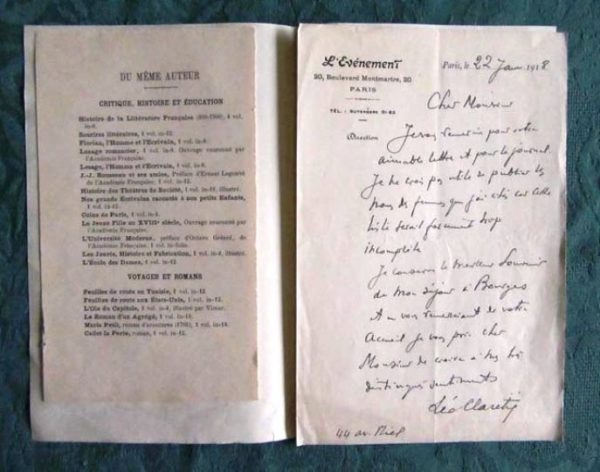 DU MÊME AUTEUR
CRITIQUE, HISTOIRE ET ÉDUCATION
Histoire de la Littérature Française (900-1900), 4 vol.
in-8.
Sourires littéraires, 1 vol. in-12.
Florian, l'Homme et l'Écrivain, 1 vol. in-8.
Lesage romancier, 1 vol. in-8. Ouvrage couronné par
l'Académie Française.
Lesage, l'Homme et l'Écrivain, 1 vol. in-8.
J.-J. Rousseau et ses amies, Préface d'Ernest Legouvé
de l'Académie Française, 1 vol. in-12.
Histoire des Théâtres de Société, 1 vol. in-12, illustré.
Nos grands Écrivains racontés à nos petits Enfants,
1 vol. in-12.
Coins de Paris, 1 vol. in-12.
La Jeune Fille au XVIIIe siècle, Ouvrage couronné par
l'Académie Française.
L'Université Moderne, préface d'Octave Gréard, de
l'Académie Française, 1 vol. in-folio.
Les Jouets, Histoire et Fabrication, 1 vol. in-4, illustré.
L'École des Dames, 1 vol. in-12.
VOYAGES ET ROMANS
Feuilles de route en Tunisie, 1 vol. in-12.
Feuilles de route aux États-Unis, 1 vol. in-12.
L'Oie du Capitole, 1 vol. in-4, illustré par Vimar.
Le Roman d'un Agrégé, 1 vol. in-12.
Marie Petit, roman d'aventures (1705), 1 vol. in-12.
Cadet la Perle, roman, 1 vol. in-12.
L'Evénement
20, Boulevard Montmartre, 20
PARIS
TÉL. : GUTENBERG 01-63
Direction
Paris, le 22 Janv 1918
Cher Monsieur
Je vous remercie pour votre
aimable lettre et pour le journal.
Je ne crois pas utile de publier les
noms de femmes que j'ai cités car cette
liste serait forcément trop
incomplète
Je conserve le meilleur souvenir
de mon séjour à Bourges
et en vous remerciant de votre
accueil je vous prie cher
Monsieur de croire à mes très
distingués sentiments
Léo Claretie
44 av.